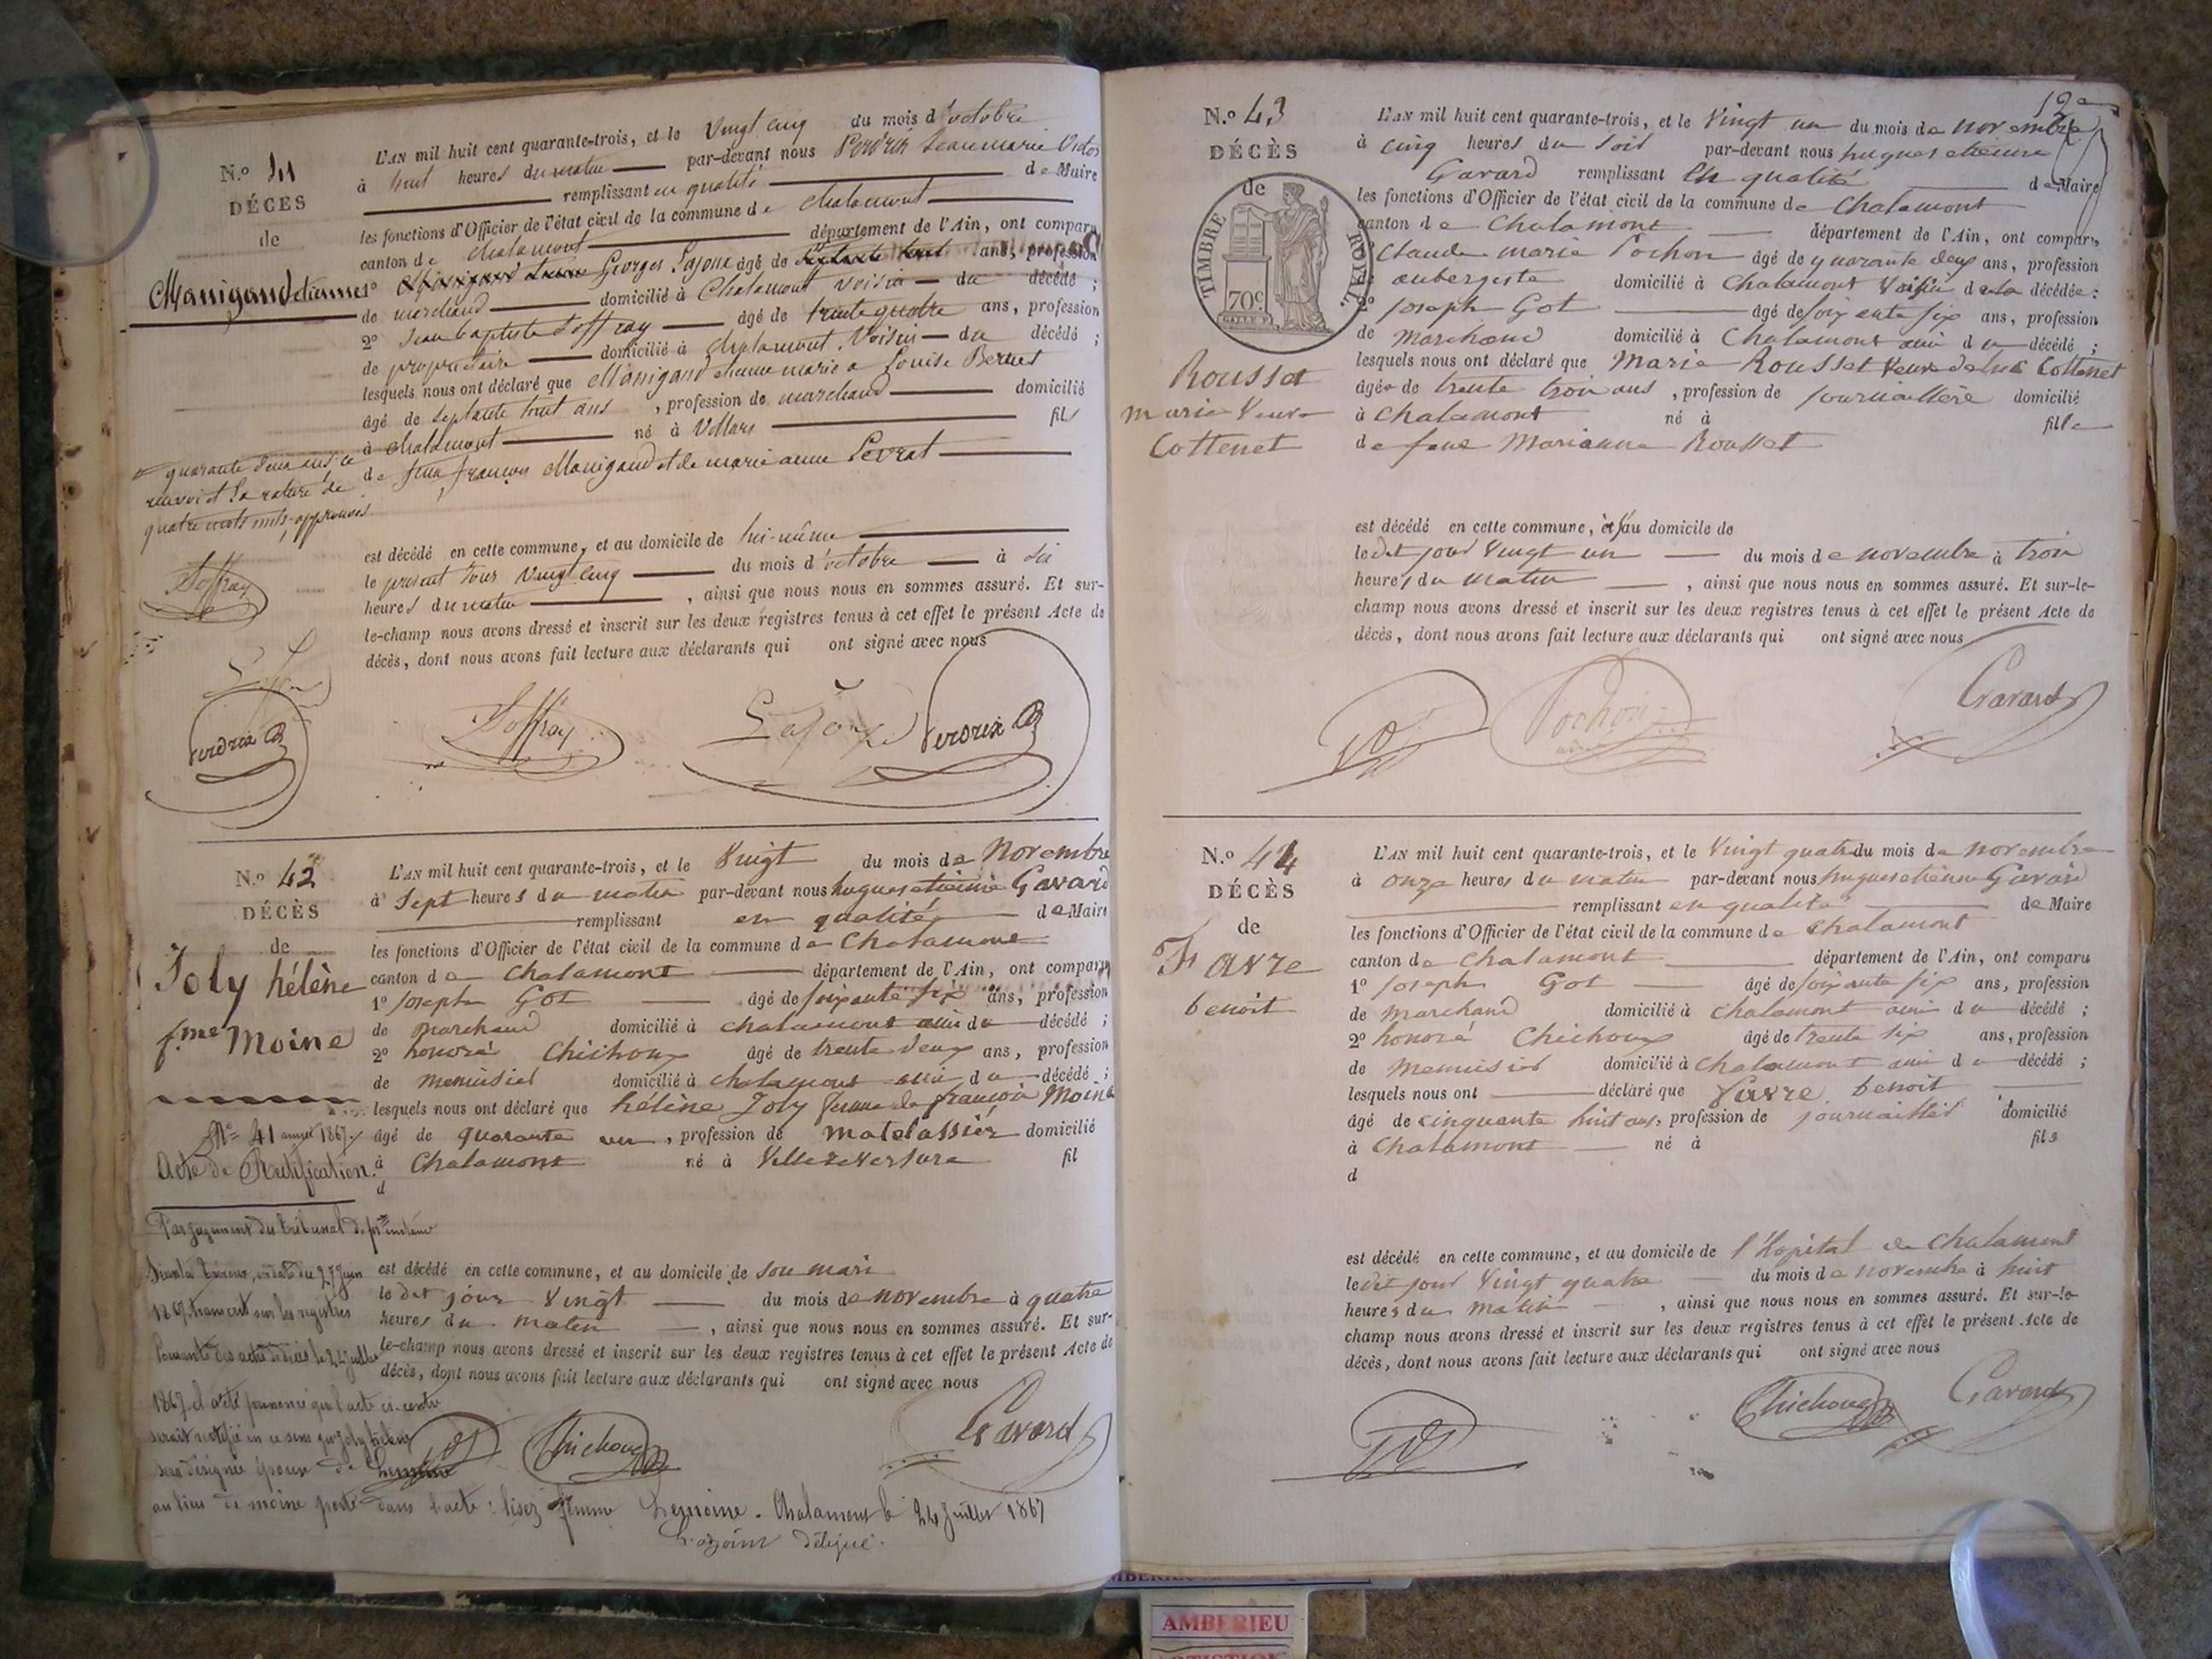 N.o 41
DÉCES
de
Manigand etienne
L'AN mil huit cent quarante-trois, et le Vingt cinq du mois d'octobre
à huit heures du matin par-devant nous Verdrix Jean marie Victor
remplissant en qualité de Maire
les fonctions d'Officier de l'état civil de la commune de Chalamont
canton de Chalamont département de l'Ain, ont comparu
1o Georges Lajoux âgé de ans, profession
de marchand domicilié à Chalamont voisin du décédé ;
2o Jean Baptiste Joffray âgé de trente quatre ans, profession
de propriétaire domicilié à Chalamont Voisin du décédé ;
lesquels nous ont déclaré que Manigand etienne marié a Louise Bernet
âgé de septante huit ans, profession de marchand domicilié
à Chalamont né à Villars fils
de feux françois Manigand et de marie anne Levrat
quarante deux ans, ce
renvoi et la rature de
quatre mots nuls, approuvés
est décédé en cette commune, et au domicile de lui-même
le présent jour Vingt cinq du mois d'octobre à six
heures du matin, ainsi que nous nous en sommes assuré. Et sur-
le-champ nous avons dressé et inscrit sur les deux registres tenus à cet effet le présent Acte de
décès, dont nous avons fait lecture aux déclarants qui ont signé avec nous
Joffray
Verdrix
Joffray Lajoux Verdrix
N.o 42
DÉCÈS
de
Joly hélène
f.me Moine
L'AN mil huit cent quarante-trois, et le Vingt du mois de Novembre
à Sept heures du matin par-devant nous hugues etienne Gavard
remplissant en qualité de Maire
les fonctions d'Officier de l'état civil de la commune de Chalamont
canton de Chalamont département de l'Ain, ont comparu
1o Joseph Got âgé de soixante six ans, profession
de marchand domicilié à chalamont ami du décédé ;
2o honoré Chichoux âgé de trente deux ans, profession
de menuisier domicilié à chalamont ami du décédé ;
lesquels nous ont déclaré que hélène Joly femme de françois Moine
âgé de quarante un, profession de matelassier domicilié
à Chalamont né à Villereversure fil
d
N.o 41 année 1867.
Acte de Rectification.
Par jugement du tribunal de p.re instance
séant à Trévoux, en date du 27 Juin
1867, transcrit sur les registres
courants des actes de décès le 24 juillet
1867, il a été prononcé que l'acte ci-contre
serait rectifié en ce sens que Joly hélène
sera désignée épouse de Lemoine
au lieu de moine porté dans l'acte : lisez femme Lemoine. Chalamont le 24 Juillet 1867
L'adjoint délégué.
est décédé en cette commune, et au domicile de son mari
le dit jour Vingt du mois de novembre à quatre
heures du matin, ainsi que nous nous en sommes assuré. Et sur-
le-champ nous avons dressé et inscrit sur les deux registres tenus à cet effet le présent Acte de
décès, dont nous avons fait lecture aux déclarants qui ont signé avec nous
Chichoux Gavard
12e
N.o 43
DÉCÈS
de
TIMBRE ROYAL.
70c
Rousset
marie Veuve
Cottenet
L'AN mil huit cent quarante-trois, et le Vingt un du mois de novembre
à cinq heures du soir par-devant nous hugues etienne
Gavard remplissant En qualité de Maire
les fonctions d'Officier de l'état civil de la commune de Chalamont
canton de Chalamont département de l'Ain, ont comparu
Claude marie Pochon âgé de quarante deux ans, profession
aubergiste domicilié à Chalamont Voisin de la décédée :
2o Joseph Got âgé de soixante six ans, profession
de marchand domicilié à Chalamont ami du décédé ;
lesquels nous ont déclaré que Marie Rousset Veuve de Cottenet
âgée de trente trois ans, profession de journaillère domicilié
à Chalamont né à fille
de feue Marianne Rousset
est décédé en cette commune, et au domicile de
le dit jour Vingt un du mois de novembre à trois
heures du matin, ainsi que nous nous en sommes assuré. Et sur-le-
champ nous avons dressé et inscrit sur les deux registres tenus à cet effet le présent Acte de
décès, dont nous avons fait lecture aux déclarants qui ont signé avec nous
Pochon Gavard
N.o 44
DÉCÈS
de
Favre
benoit
L'AN mil huit cent quarante-trois, et le Vingt quatre du mois de novembre
à onze heures du matin par-devant nous hugues etienne Gavard
remplissant en qualité de Maire
les fonctions d'Officier de l'état civil de la commune de Chalamont
canton de Chalamont département de l'Ain, ont comparu
1o Joseph Got âgé de soixante six ans, profession
de marchand domicilié à Chalamont ami du décédé ;
2o honoré Chichoux âgé de trente six ans, profession
de Menuisier domicilié à Chalamont ami du décédé ;
lesquels nous ont déclaré que Favre benoit
âgé de cinquante huit ans, profession de journaillier domicilié
à Chalamont né à fils
d
est décédé en cette commune, et au domicile de l'Hopital de Chalamont
le dit jour Vingt quatre du mois de novembre à huit
heures du matin, ainsi que nous nous en sommes assuré. Et sur-le-
champ nous avons dressé et inscrit sur les deux registres tenus à cet effet le présent Acte de
décès, dont nous avons fait lecture aux déclarants qui ont signé avec nous
Chichoux Gavard
AMBERIEU